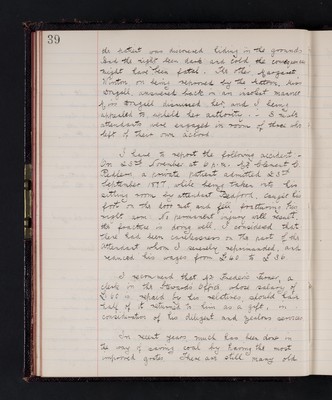 39
the patient was discovered hiding in the grounds
had the night been dark and cold the consequences
might have been fatal. The other Margaret
on being reproved by the Matron, Miss
answered back in an insolent manner
Miss dismissed her, and I being
appealed to upheld her authority. - 3 male
attendants were engaged in room of three who
left of their own accord.
I have to report the following accident -
On 23rd November at 8 p.m. Mr Clement S.
a private patient admitted 23rd
September 1877, while being taken into his
sitting room by attendant Bedford, caught his
foot on the door mat and fell fracturing his
right arm. No permanent injury will result,
the fracture is doing well. I considered that
there had been carelessness on the part of the
Attendant whom I severely reprimanded, and
reduced his wages from £40 to £36
I recommend that Mr Frederic a
clerk in the Stewards Office whose salary of
£60 is repaid by his relatives, should have
half of it returned to him as a gift, in
consideration of his diligent and zealous services
In recent years much has been done in
the way of saving coal by having the most
improved grates. There are still many old